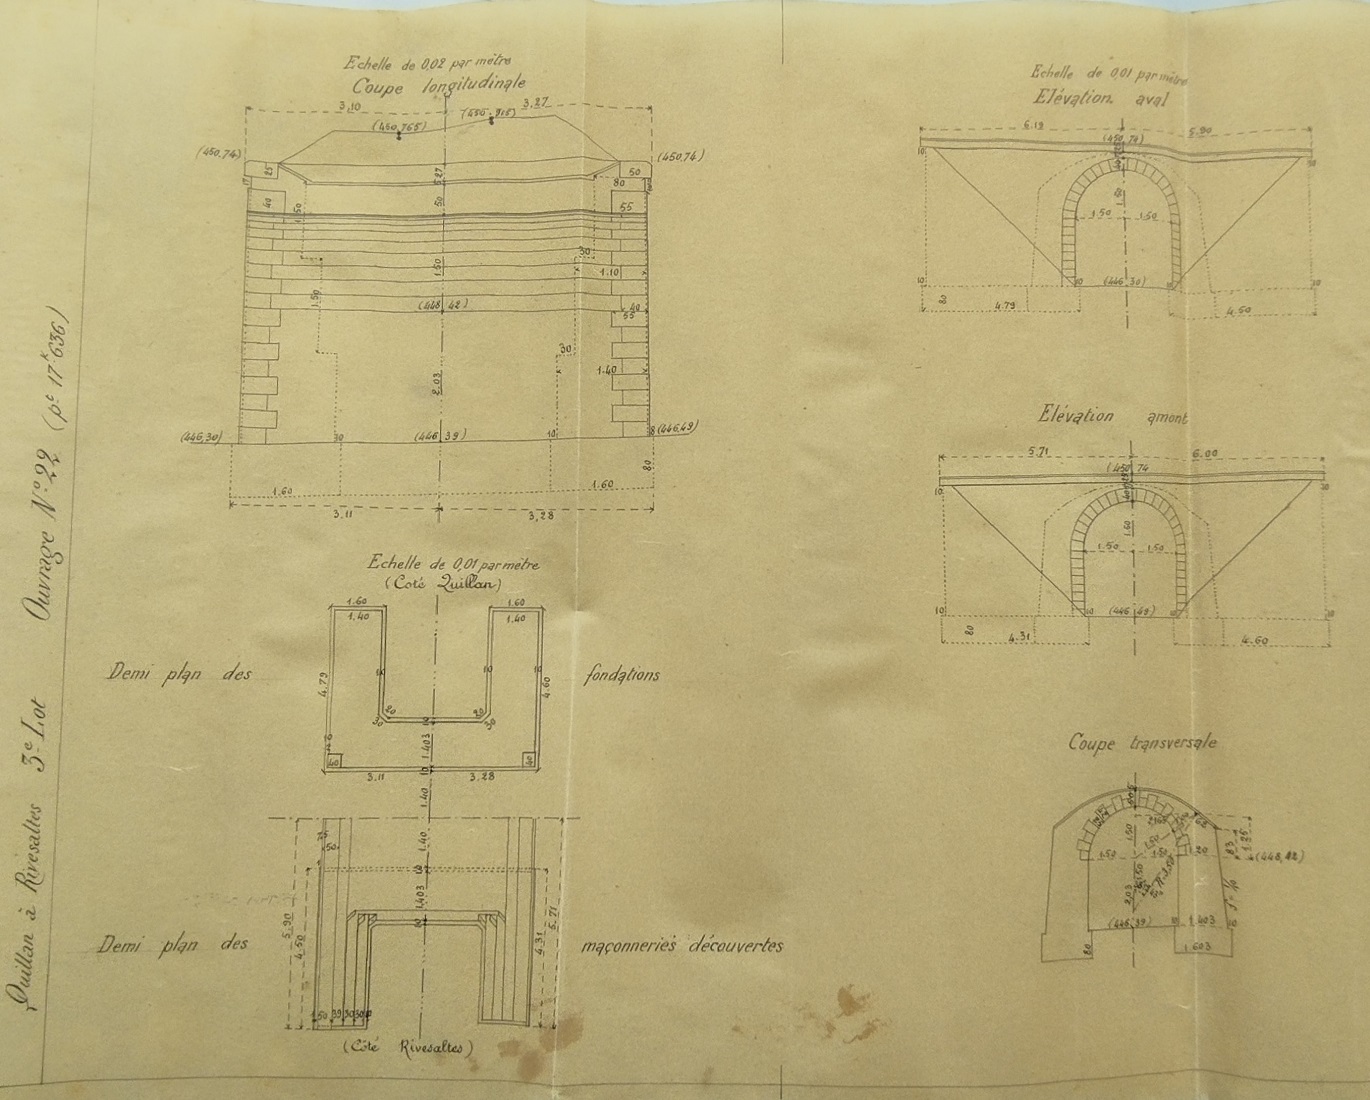 Quillan à Rivesaltes 3e Lot Ouvrage No 22 (pt 17k636)
Echelle de 0,02 par mètre
Coupe longitudinale
3,10
3,27
(450,765)
(450,915)
(450,74)
(450,74)
25
50
80
40
50
55
1.50
30
1.50
1.10
1.50
(448,42)
40
55
30
1.40
2.03
(446,30)
10
(446,39)
10
(446,49)
80
1.60
1.60
3,11
3,28
Echelle de 0,01 par mètre
(Coté Quillan)
1.60
1.60
1.40
1.40
4.79
10
10
10
4.60
Demi plan des fondations
1.403
40
40
3,11
3,28
1.40
1.40
50
1.403
5.90
4.50
4.31
5.71
Demi plan des maçonneries découvertes
(Côté Rivesaltes)
Echelle de 0,01 par mètre
Elévation aval
6.19
5.90
(450,74)
10
1.50
1.50
10
(446,30)
10
80
4.79
4.50
Elévation amont
5.71
6.00
(450,74
10
1.60
1.50
1.50
10
(446,49)
10
80
4.31
4.60
Coupe transversale
1.50
1.50
1.50
1.50
1.20
83
1.25
(448,42)
2.03
(446,39)
10
1.403
80
1.603